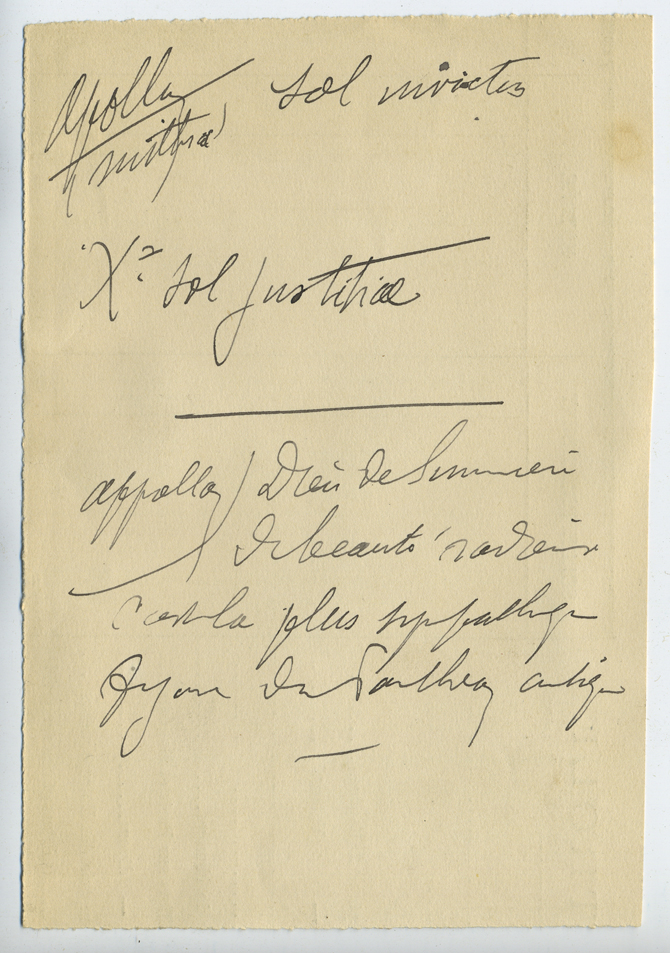 Apollon Sol invictus
mithra
Xs Sol justitiae
Appollon Dieu de lumière
de beauté radieux
c'est la plus sympathique
figure du Panthéon antique